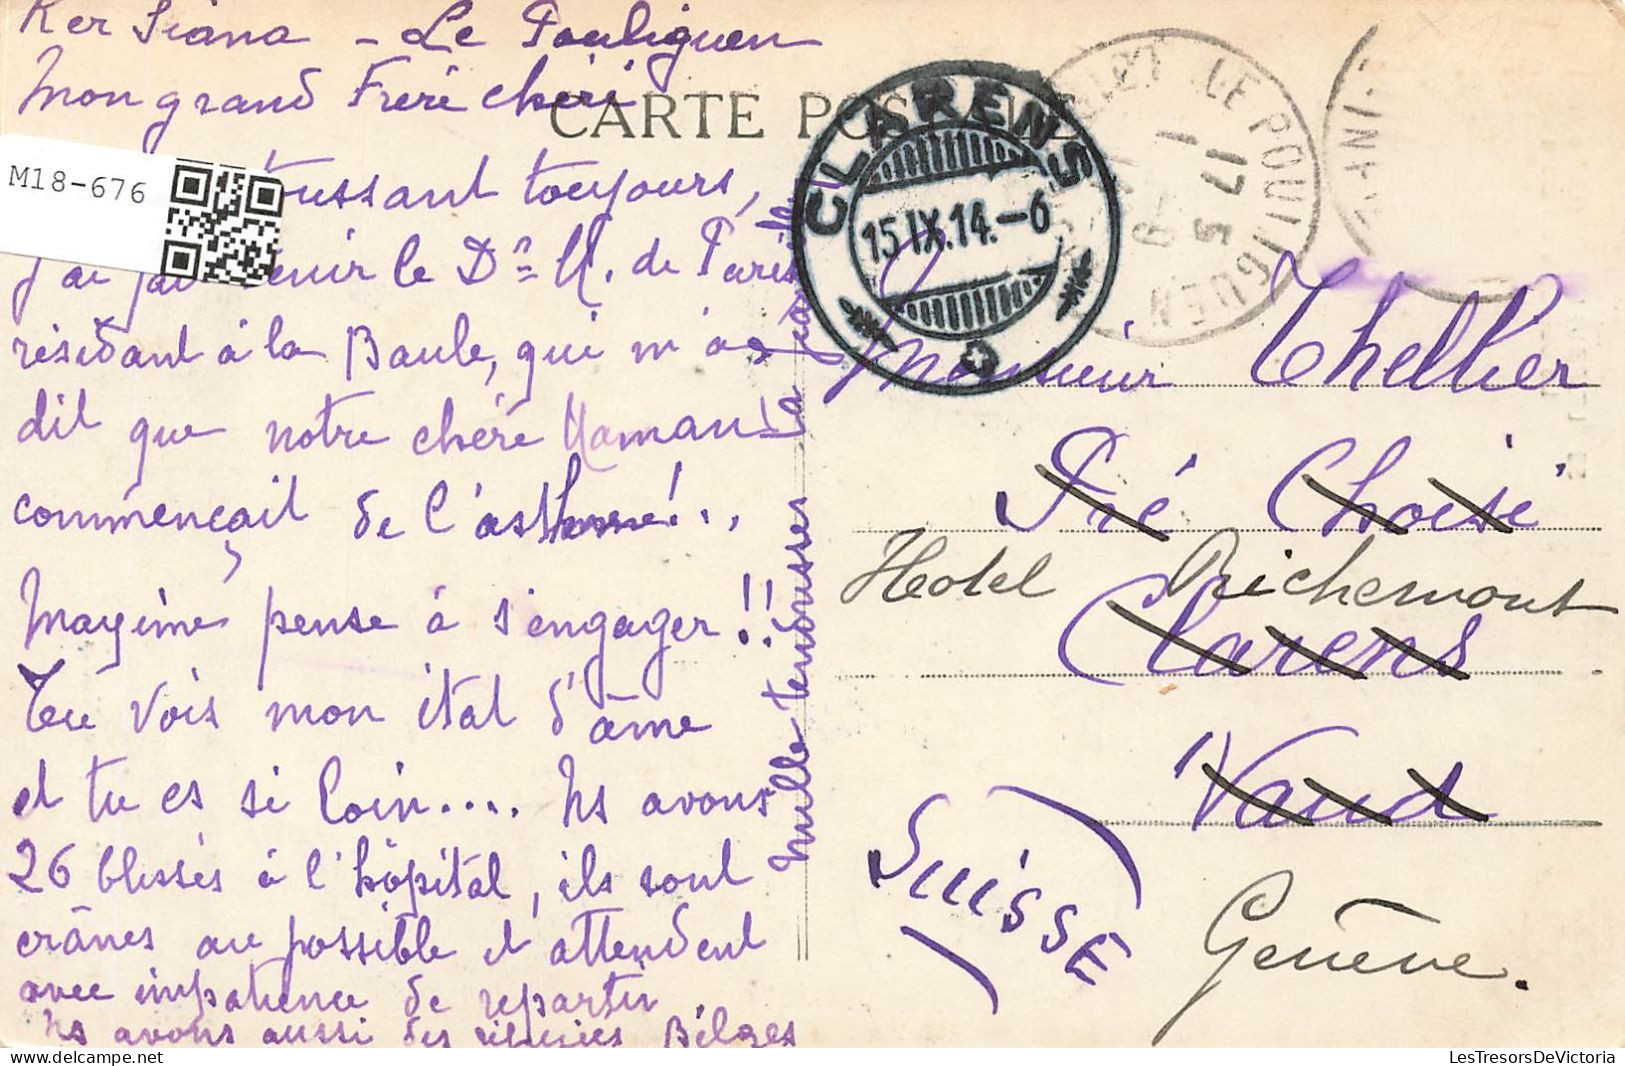 Ker Siana - Le Pouliguen
Mon grand Frère chéri
CARTE POSTALE
M18-676
toussant toujours,
j'ai fait venir le Dr M. de Paris
résidant à la Baule, qui m'a
dit que notre chère Maman
commençait de l'asthme!..
Maxime pense à s'engager!!
Tu vois mon état d'âme
et tu es si loin.... Ns avons
26 blessés à l'hôpital, ils sont
crânes au possible et attendent
avec impatience de repartir
Ns avons aussi des réfugiés Belges
mille tendresses
CLARENS
15.IX.14.-6
LE POULIGUEN
17 5
Monsieur Thellier
Pré Choisi
Hotel Richemont
Clarens
Vaud
Suisse
Genève.
LesTresorsDeVictoria